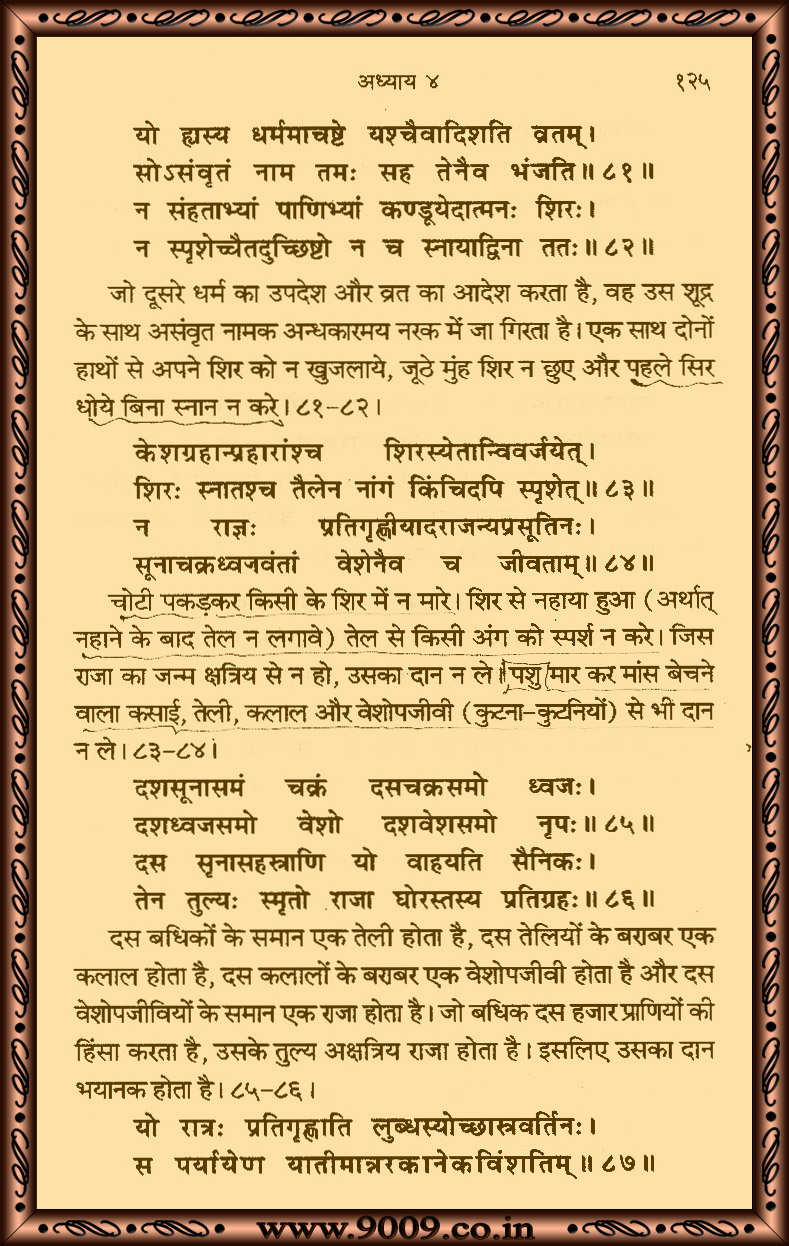 अध्याय ४ १२५
यो ह्यस्य धर्ममाचष्टे यश्चैवादिशति व्रतम्।
सोऽसंवृतं नाम तमः सह तेनैव भंजति॥८१॥
न संहताभ्यां पाणिभ्यां कण्डूयेदात्मनः शिरः।
न स्पृशेच्चैतदुच्छिष्टो न च स्नायाद्विना ततः॥८२॥
जो दूसरे धर्म का उपदेश और व्रत का आदेश करता है, वह उस शूद्र
के साथ असंवृत नामक अन्धकारमय नरक में जा गिरता है। एक साथ दोनों
हाथों से अपने शिर को न खुजलाये, जूठे मुंह शिर न छुए और पहले सिर
धोये बिना स्नान न करे।८१-८२।
केशग्रहान्प्रहारांश्च शिरस्येतान्विवर्जयेत्।
शिरः स्नातश्च तैलेन नांगं किंचिदपि स्पृशेत्॥८३॥
न राज्ञः प्रतिगृह्णीयादराजन्यप्रसूतिनः।
सूनाचक्रध्वजवंतां वेशेनैव च जीवताम्॥८४॥
चोटी पकड़कर किसी के शिर में न मारे। शिर से नहाया हुआ (अर्थात्
नहाने के बाद तेल न लगावे) तेल से किसी अंग को स्पर्श न करे। जिस
राजा का जन्म क्षत्रिय से न हो, उसका दान न ले। पशु मार कर मांस बेचने
वाला कसाई, तेली, कलाल और वेशोपजीवी (कुटना-कुटनियों) से भी दान
न ले।८३-८४।
दशसूनासमं चक्रं दसचक्रसमो ध्वजः।
दशध्वजसमो वेशो दशवेशसमो नृपः॥८५॥
दस सृनासहस्त्राणि यो वाहयति सैनिकः।
तेन तुल्यः स्मृतो राजा घोरस्तस्य प्रतिग्रहः॥८६॥
दस बधिकों के समान एक तेली होता है, दस तेलियों के बराबर एक
कलाल होता है, दस कलालों के बराबर एक वेशोपजीवी होता है और दस
वेशोपजीवियों के समान एक राजा होता है। जो बधिक दस हजार प्राणियों की
हिंसा करता है, उसके तुल्य अक्षत्रिय राजा होता है। इसलिए उसका दान
भयानक होता है।८५-८६।
यो रात्रः प्रतिगृह्णाति लुब्धस्योच्छास्त्रवर्तिनः।
स पर्यायेण यातीमान्नरकानेकविंशतिम्॥८७॥
www.9009.co.in